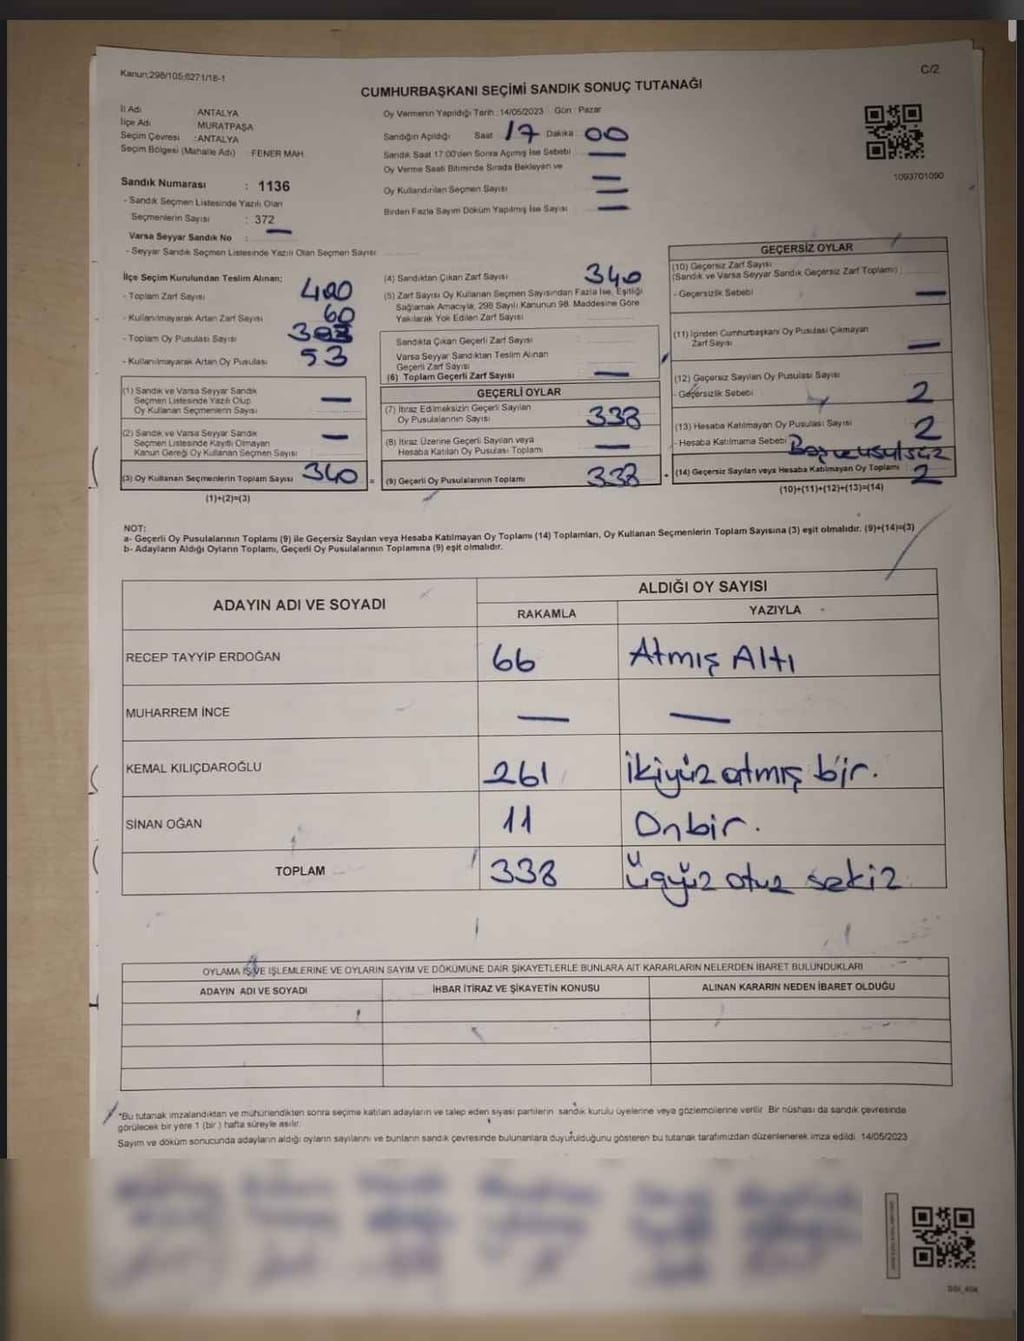 Kanun:298/105;6271/18-1
C/2
CUMHURBAŞKANI SEÇİMİ SANDIK SONUÇ TUTANAĞI
İl Adı ANTALYA
İlçe Adı MURATPAŞA
Seçim Çevresi : ANTALYA
Seçim Bölgesi (Mahalle Adı) FENER MAH.
Oy Vermenin Yapıldığı Tarih : 14/05/2023 Gün : Pazar
Sandığın Açıldığı Saat 17 Dakika 00
Sandık Saat 17:00'den Sonra Açılmış İse Sebebi —
Oy Verme Saati Bitiminde Sırada Bekleyen ve
Oy Kullandırılan Seçmen Sayısı —
Birden Fazla Sayım Döküm Yapılmış İse Sayısı —
1093701090
Sandık Numarası : 1136
- Sandık Seçmen Listesinde Yazılı Olan
Seçmenlerin Sayısı : 372
Varsa Seyyar Sandık No : —
- Seyyar Sandık Seçmen Listesinde Yazılı Olan Seçmen Sayısı
İlçe Seçim Kurulundan Teslim Alınan;
- Toplam Zarf Sayısı 400
- Kullanılmayarak Artan Zarf Sayısı 60
- Toplam Oy Pusulası Sayısı
- Kullanılmayarak Artan Oy Pusulası 53
(1) Sandık ve Varsa Seyyar Sandık
Seçmen Listesinde Yazılı Olup
Oy Kullanan Seçmenlerin Sayısı —
(2) Sandık ve Varsa Seyyar Sandık
Seçmen Listesinde Kayıtlı Olmayan
Kanun Gereği Oy Kullanan Seçmen Sayısı —
(3) Oy Kullanan Seçmenlerin Toplam Sayısı 340 =
(1)+(2)=(3)
(4) Sandıktan Çıkan Zarf Sayısı 340
(5) Zarf Sayısı Oy Kullanan Seçmen Sayısından Fazla İse, Eşitliği
Sağlamak Amacıyla, 298 Sayılı Kanunun 98. Maddesine Göre
Yakılarak Yok Edilen Zarf Sayısı
Sandıkta Çıkan Geçerli Zarf Sayısı
Varsa Seyyar Sandıktan Teslim Alınan
Geçerli Zarf Sayısı
(6) Toplam Geçerli Zarf Sayısı —
GEÇERLİ OYLAR
(7) İtiraz Edilmeksizin Geçerli Sayılan
Oy Pusulalarının Sayısı 338
(8) İtiraz Üzerine Geçerli Sayılan veya
Hesaba Katılan Oy Pusulası Toplamı —
(9) Geçerli Oy Pusulalarının Toplamı 338 +
GEÇERSİZ OYLAR
(10) Geçersiz Zarf Sayısı
(Sandık ve Varsa Seyyar Sandık Geçersiz Zarf Toplamı)
- Geçersizlik Sebebi —
(11) İçinden Cumhurbaşkanı Oy Pusulası Çıkmayan
Zarf Sayısı —
(12) Geçersiz Sayılan Oy Pusulası Sayısı
- Geçersizlik Sebebi 2
(13) Hesaba Katılmayan Oy Pusulası Sayısı 2
- Hesaba Katılmama Sebebi
(14) Geçersiz Sayılan veya Hesaba Katılmayan Oy Toplamı 2
(10)+(11)+(12)+(13)=(14)
NOT:
a- Geçerli Oy Pusulasının Toplamı (9) ile Geçersiz Sayılan veya Hesaba Katılmayan Oy Toplamı (14) Toplamları, Oy Kullanan Seçmenlerin Toplam Sayısına (3) eşit olmalıdır. (9)+(14)=(3)
b- Adayların Aldığı Oyların Toplamı, Geçerli Oy Pusulalarının Toplamına (9) eşit olmalıdır.
ADAYIN ADI VE SOYADI
ALDIĞI OY SAYISI
RAKAMLA YAZIYLA
RECEP TAYYİP ERDOĞAN 66 Atmış Altı
MUHARREM İNCE — —
KEMAL KILIÇDAROĞLU 261 İkiyüz atmış bir.
SİNAN OĞAN 11 Onbir.
TOPLAM 338 Üçyüz otuz sekiz
OYLAMA İŞ VE İŞLEMLERİNE VE OYLARIN SAYIM VE DÖKÜMÜNE DAİR ŞİKAYETLERLE BUNLARA AİT KARARLARIN NELERDEN İBARET BULUNDUKLARI
ADAYIN ADI VE SOYADI İHBAR İTİRAZ VE ŞİKAYETİN KONUSU ALINAN KARARIN NEDEN İBARET OLDUĞU
*Bu tutanak imzalandıktan ve mühürlendikten sonra seçime katılan adayların ve talep eden siyasi partilerin sandık kurulu üyelerine veya gözlemcilerine verilir. Bir nüshası da sandık çevresinde
görülecek bir yere 1 (bir) hafta süreyle asılır.
Sayım ve döküm sonucunda adayların aldığı oyların sayılarını ve bunların sandık çevresinde bulunanlara duyurulduğunu gösteren bu tutanak tarafımızdan düzenlenerek imza edildi. 14/05/2023